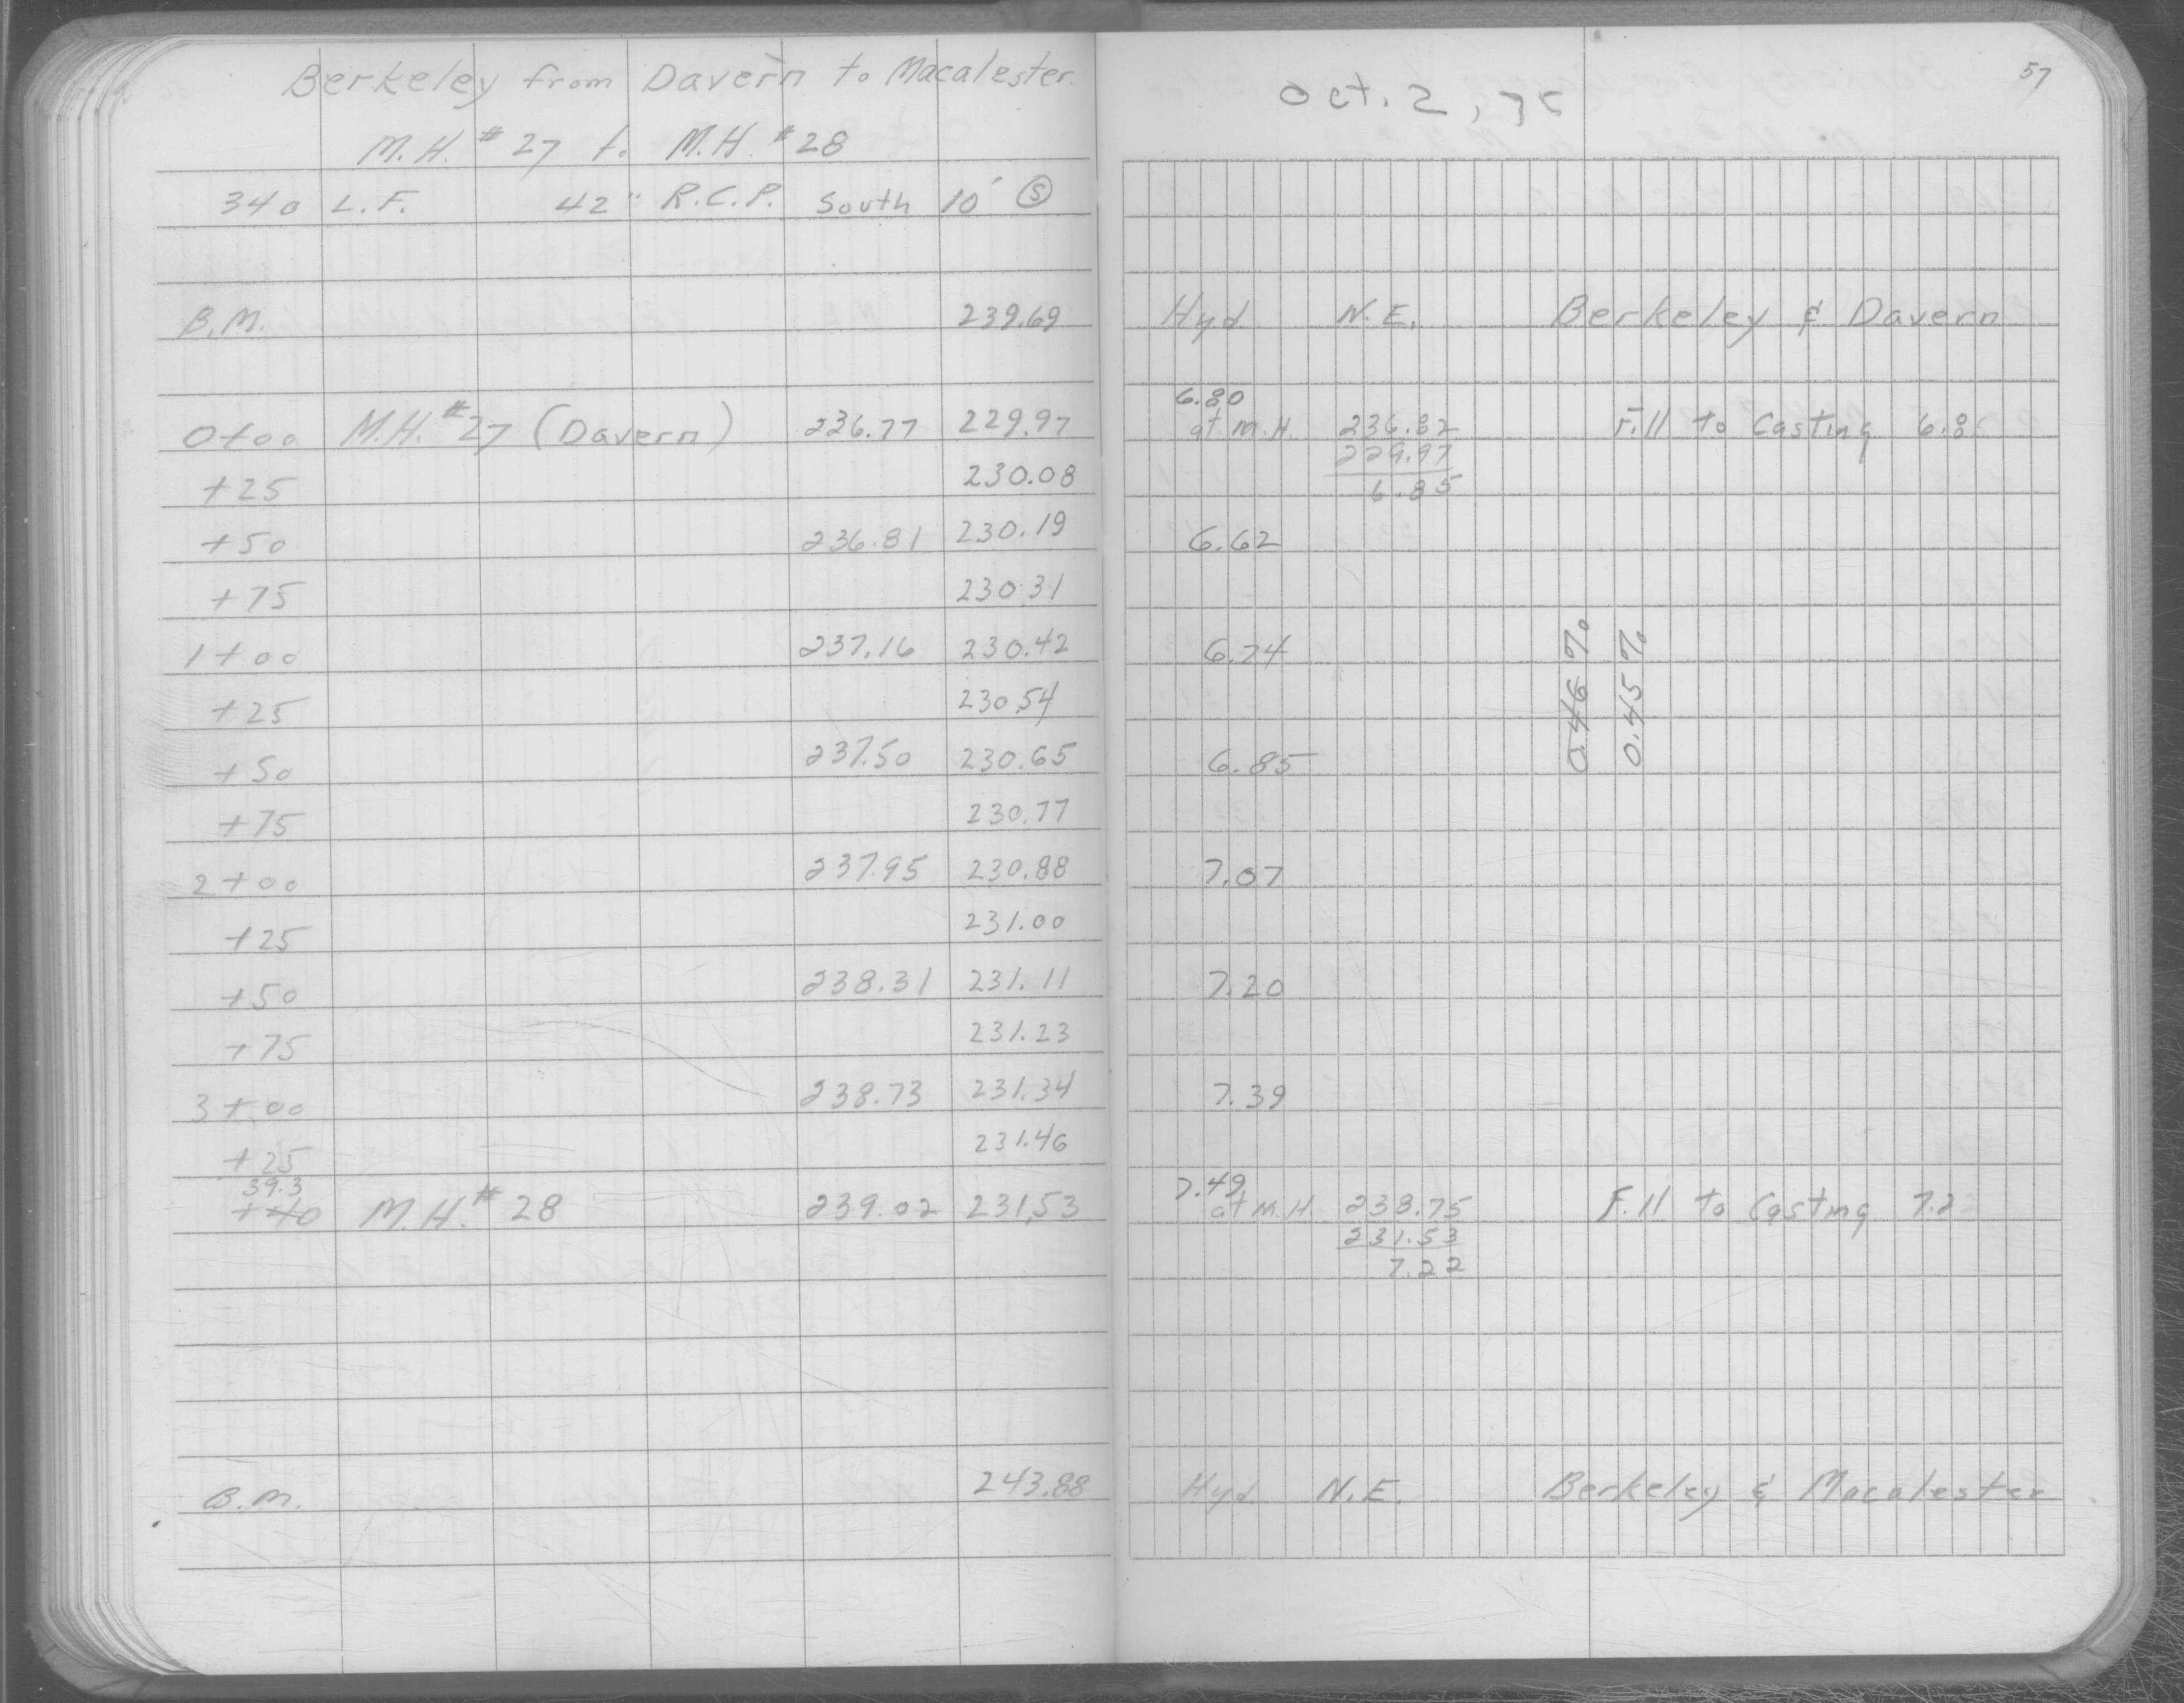 Berkeley from Davern to Macalester.
M.H. #27 to M.H. #28
340 L.F. 42" R.C.P. South 10' Ⓢ
B.M. 239.69
0+00 M.H. #27 (Davern) 236.77 229.97
+25 230.08
+50 236.81 230.19
+75 230.31
1+00 237.16 230.42
+25 230.54
+50 237.50 230.65
+75 230.77
2+00 237.95 230.88
+25 231.00
+50 238.31 231.11
+75 231.23
3+00 238.73 231.34
+25 231.46
39.3
+40 M.H. #28 239.02 231.53
B.M. 243.88
57
Oct. 2, 75
Hyd N.E. Berkeley & Davern
6.80
at M.H. 236.82 Fill to Casting 6.8
229.97
6.85
6.62
6.74
0.46 %
0.45 %
6.85
7.07
7.20
7.39
7.49
at M.H 238.75 Fill to Casting 7.2
231.53
7.22
Hyd N.E. Berkeley & Macalester